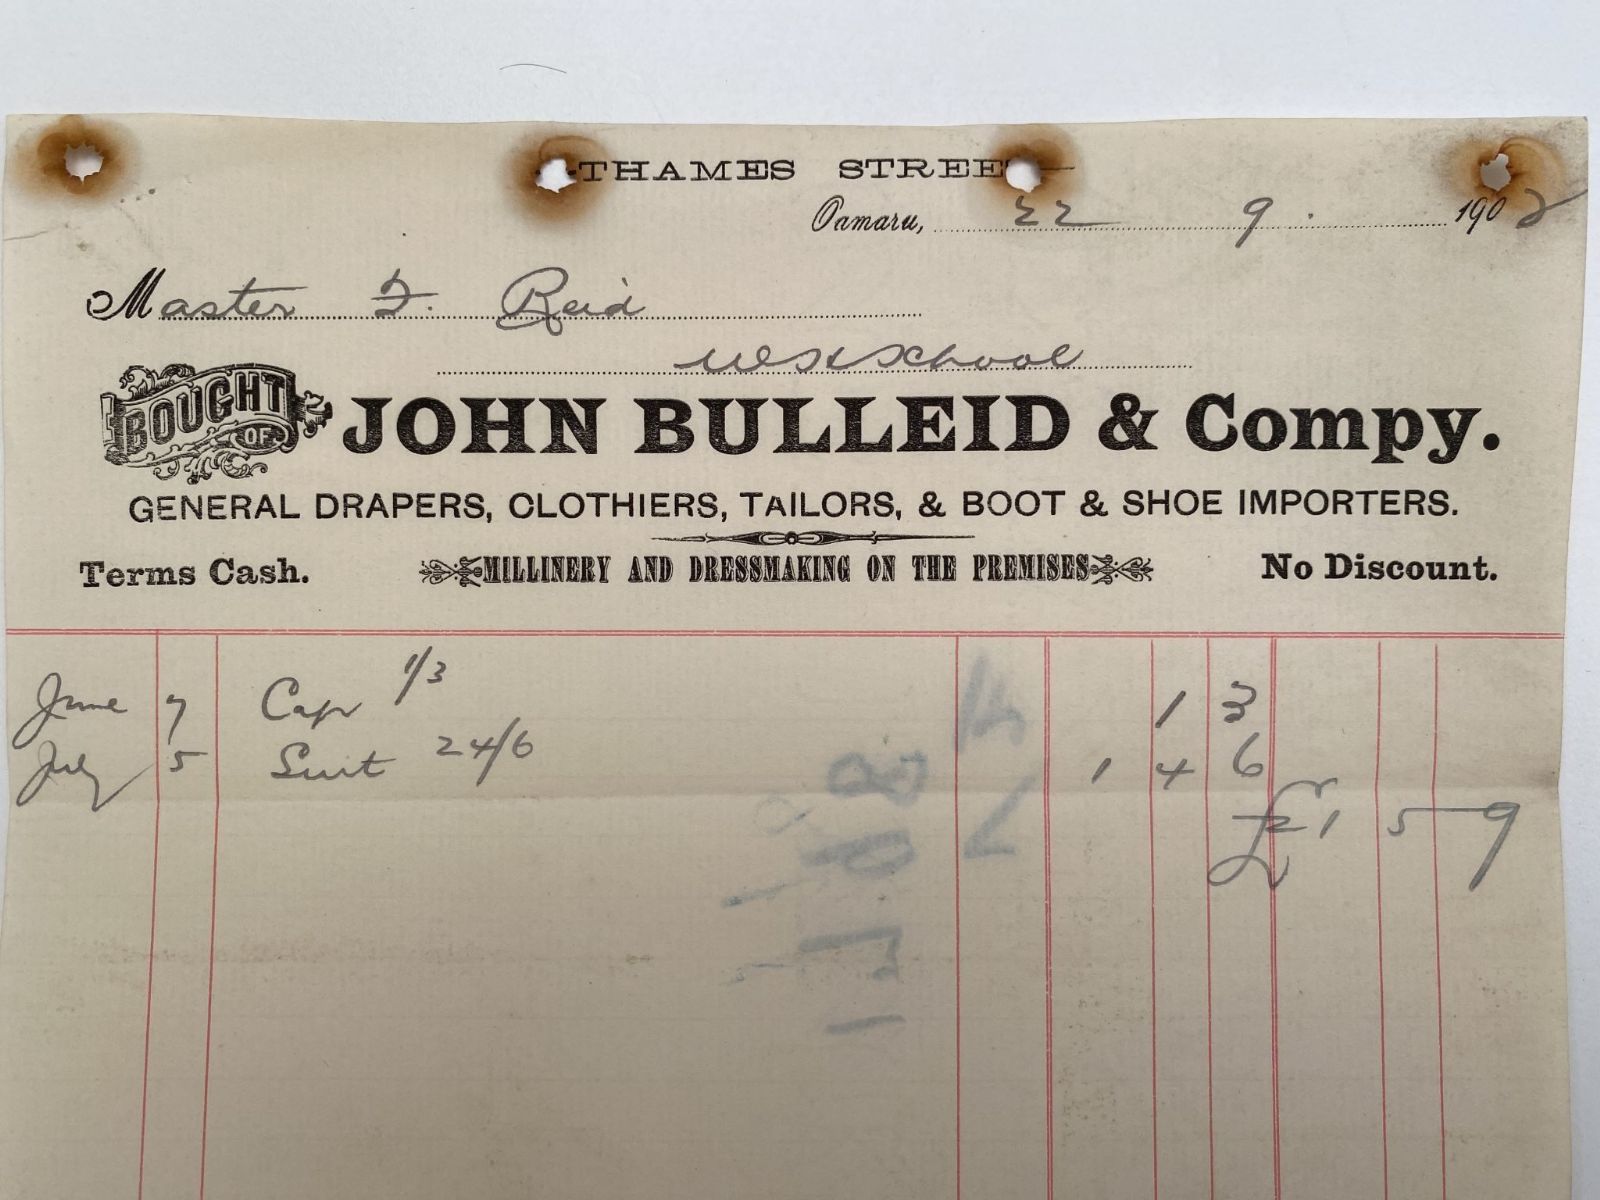 THAMES STREE
Oamaru, 22 9. 1902
Master F. Reid
West School
BOUGHT OF JOHN BULLEID & Compy.
GENERAL DRAPERS, CLOTHIERS, TAILORS, & BOOT & SHOE IMPORTERS.
Terms Cash. MILLINERY AND DRESSMAKING ON THE PREMISES No Discount.
June 7 Cap 1/3 1 3
July 5 Suit 24/6 1 4 6
£1 5 9